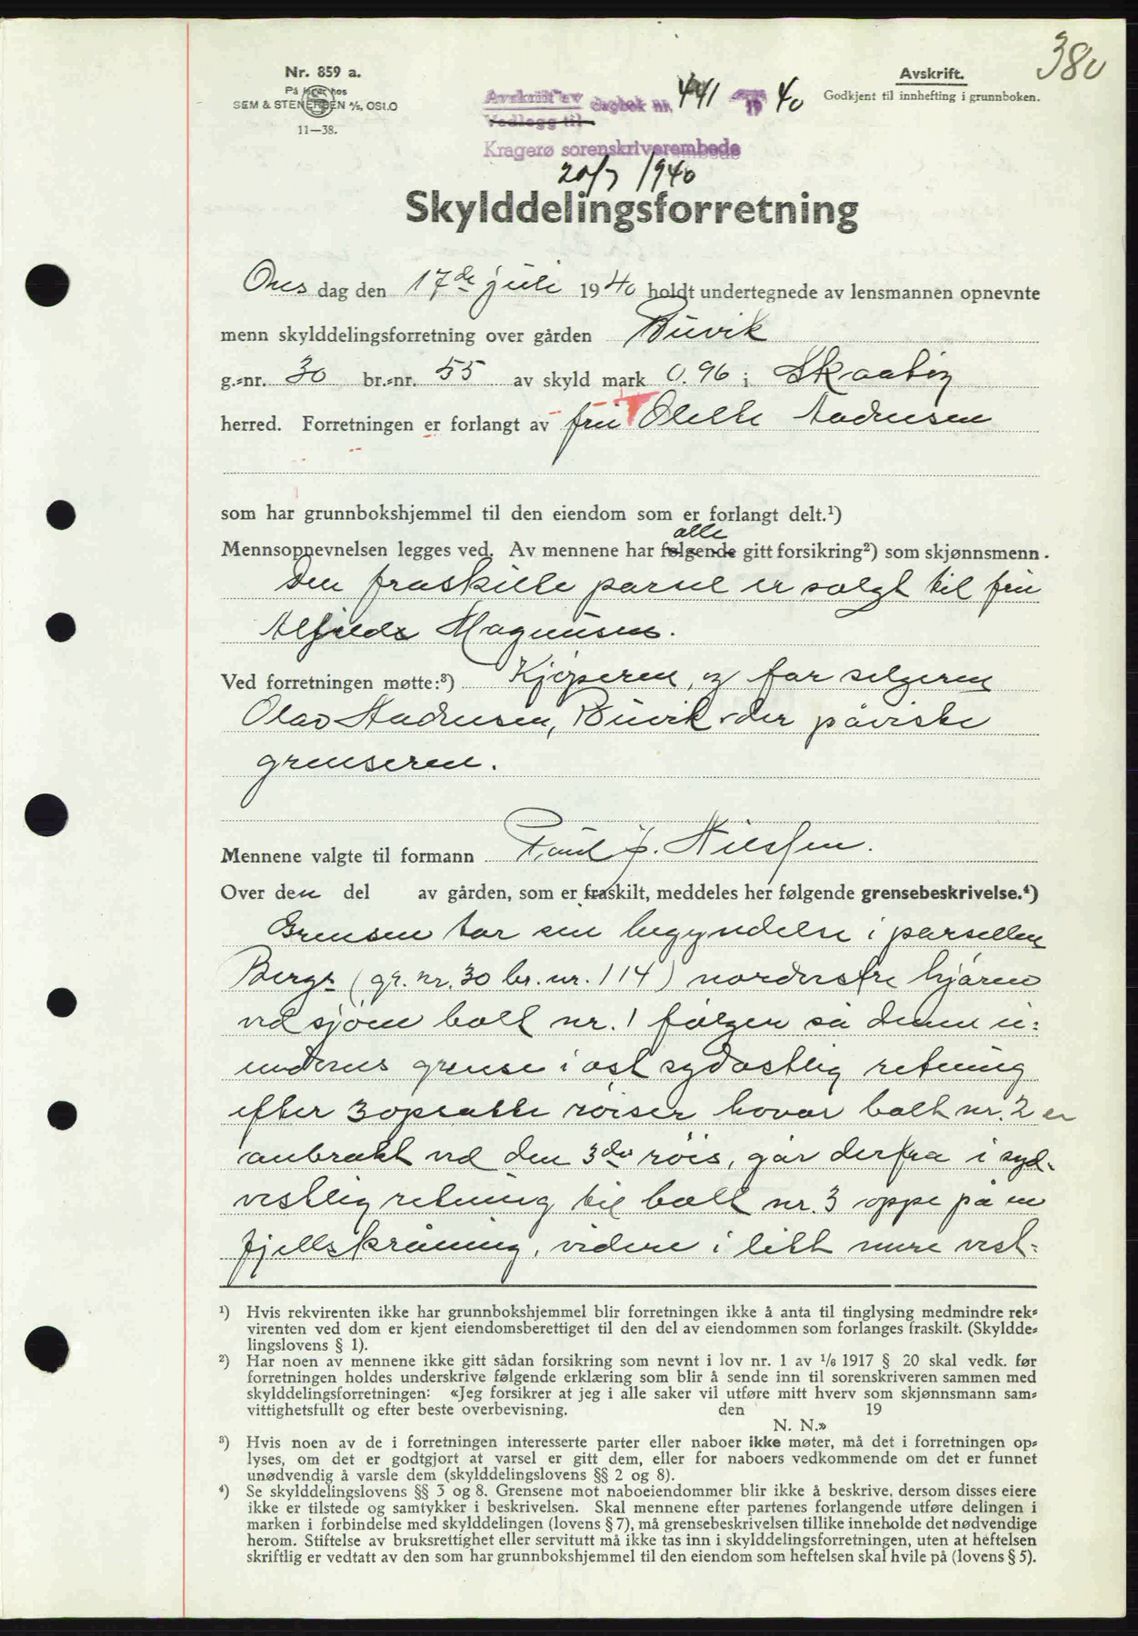 380
Nr. 859 a.
På lager hos
SEM & STENERSEN A/S, OSLO
11—38.
Avskrift av dagbok nr. 441 19 40
Vedlegg til
Kragerø sorenskriverembede
20/7 1940
Avskrift.
Godkjent til innhefting i grunnboken.
Skylddelingsforretning
Ons dag den 17de juli 1940 holdt undertegnede av lensmannen opnevnte
menn skylddelingsforretning over gården Buvik
g.-nr. 30 br.-nr. 55 av skyld mark 0.96 i Skaatøy
herred. Forretningen er forlangt av fru Olette Andresen
som har grunnbokshjemmel til den eiendom som er forlangt delt.¹)
Mennsopnevnelsen legges ved. Av mennene har følgende alle gitt forsikring²) som skjønnsmenn.
Den fraskilte parsel er solgt til fru
Alfilde Magnusen.
Ved forretningen møtte:³) Kjøperen, og for selgeren
Olav Andresen, Buvik der påviste
grenseren.
Mennene valgte til formann Paul J. Nilssen.
Over den del av gården, som er fraskilt, meddeles her følgende grensebeskrivelse.⁴)
Grensen tar sin begyndelse i parsellen
Berge (gr. nr. 30 br. nr. 114) norderstre hjørne
ved sjøen bolt nr. 1 følger så denne ei-
endoms grense i øst sydøstlig retning
efter 3 opsatte røiser hvor bolt nr. 2 er
anbrakt ved den 3die røis, går derfra i syd-
vestlig retning til bolt nr. 3 oppe på en
fjellskråning, videre i litt mere vest-
¹) Hvis rekvirenten ikke har grunnbokshjemmel blir forretningen ikke å anta til tinglysing medmindre rek-
virenten ved dom er kjent eiendomsberettiget til den del av eiendommen som forlanges fraskilt. (Skyldde-
lingslovens § 1).
²) Har noen av mennene ikke gitt sådan forsikring som nevnt i lov nr. 1 av 1/6 1917 § 20 skal vedk. før
forretningen holdes underskrive følgende erklæring som blir å sende inn til sorenskriveren sammen med
skylddelingsforretningen: «Jeg forsikrer at jeg i alle saker vil utføre mitt hverv som skjønnsmann sam-
vittighetsfullt og efter beste overbevisning. den 19
N. N.»
³) Hvis noen av de i forretningen interesserte parter eller naboer ikke møter, må det i forretningen op-
lyses, om det er godtgjort at varsel er gitt dem, eller for naboers vedkommende om det er funnet
unødvendig å varsle dem (skylddelingslovens §§ 2 og 8).
⁴) Se skylddelingslovens §§ 3 og 8. Grensene mot naboeiendommer blir ikke å beskrive, dersom disses eiere
ikke er tilstede og samtykker i beskrivelsen. Skal mennene efter partenes forlangende utføre delingen i
marken i forbindelse med skylddelingen (lovens § 7), må grensebeskrivelsen tillike inneholde det nødvendige
herom. Stiftelse av bruksrettighet eller servitutt må ikke tas inn i skylddelingsforretningen, uten at heftelsen
skriftlig er vedtatt av den som har grunnbokshjemmel til den eiendom som heftelsen skal hvile på (lovens § 5).